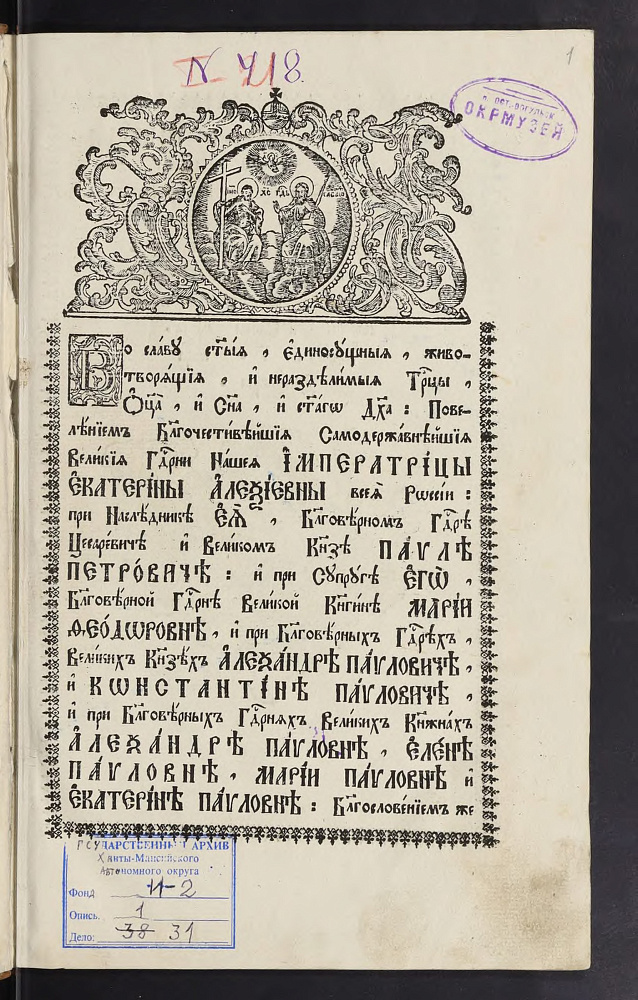 N 718
1
ОКРМУЗЕЙ
Во славу ст҃ы́ѧ , є҆диносꙋ́щныѧ , живо-
творѧ́щїѧ , и҆ неразд̾ѣли́мыѧ Трⷪ҇цы ,
Ѻ҆ц҃а̀ , и҆ Сн҃а , и҆ ст҃а́гѡ Дх҃а : Пове-
лѣ́нїемъ Бл҃гочести́вѣйшїѧ Самодержа́внѣйшїѧ
Вели́кїѧ Гдⷭ҇рни На́шеѧ І҆МПЕРАТРІ́ЦЫ
Є҆КАТЕРІ́НЫ А҆ЛЕѮІ́ЕВНЫ всеѧ̀ Рѡссі́и :
при Наслѣ́дникѣ Є҆Ѧ̀ , Бл҃говѣ́рномъ Гдⷭ҇рѣ
Цесаре́вичѣ и҆ Вели́комъ Кн҃зѣ ПА́ѴЛѢ
ПЕТРО́ВИЧѢ : и҆ при Сꙋпрꙋ́гѣ Є҆ГѠ̀ ,
Бл҃говѣ́рной Гдⷭ҇рнѣ Вели́кой Кн҃ги́нѣ МАРІ́И
Ѳ҆ЕО́ДѠРОВНѢ , и҆ при Бл҃говѣ́рныхъ Гдⷭ҇рѣхъ ,
Вели́кихъ Кн҃зѣхъ А҆ЛЕѮА́НДРѢ ПА́ѴЛОВИЧѢ ,
и҆ КѠНСТАНТІ́НѢ ПА́ѴЛОВИЧѢ ,
и҆ при Бл҃говѣ́рныхъ Гдⷭ҇рнѧхъ Вели́кихъ Кн҃жна́хъ
А҆ЛЕѮА́НДРѢ ПА́ѴЛОВНѢ , Є҆ЛЕ́НѢ
ПА́ѴЛОВНѢ , МАРІ́И ПА́ѴЛОВНѢ и҆
Є҆КАТЕРІ́НѢ ПА́ѴЛОВНѢ : Бл҃гослове́нїемъ же
ГСУДАРСТВЕННЫЙ АРХИВ
Ханты-Мансийского
Автономного округа
Фонд 11 2
Опись. 1
Дело: 38 31